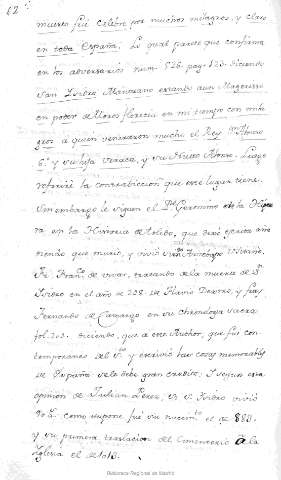 12
muerto fué celebre por muchos milagros, y claro
en toda España, lo qual parece que confirma
en los adversarios num. 526. pag. 123. diciendo
San Isidro Mantuano estando aun Magerit
en poder de Moros florecia en mi tiempo con mila-
gros a quien veneraron mucho el Rey Alonso
6.º y su hija Urraca, y su Nieto Alonso. Luego
referiré la contradiccion que este lugar tiene.
Sin embargo le siguen el P.e Geronimo de la Higue-
ra en la Historia de Toledo, que dexó escrita
que murió, y vivió
Fr. Fran.co de vivar, tratando de la muerte de S.n
Isidro en el año de de Flavio Dextro, y fray
Fernando de Camargo en su Chronologia sacra
fol. 203. diciendo, que a este Author, que fue con-
temporaneo del S.to y escrivió las cosas memorables
de España se le debe gran credito. Segun esta
opinion de Julian Perez, S. Isidro vivió
90 a.s como supone fue su nacim.to el de 
y su primera traslacion del Cimenterio a la
Iglesia el de
Biblioteca Regional de Madrid